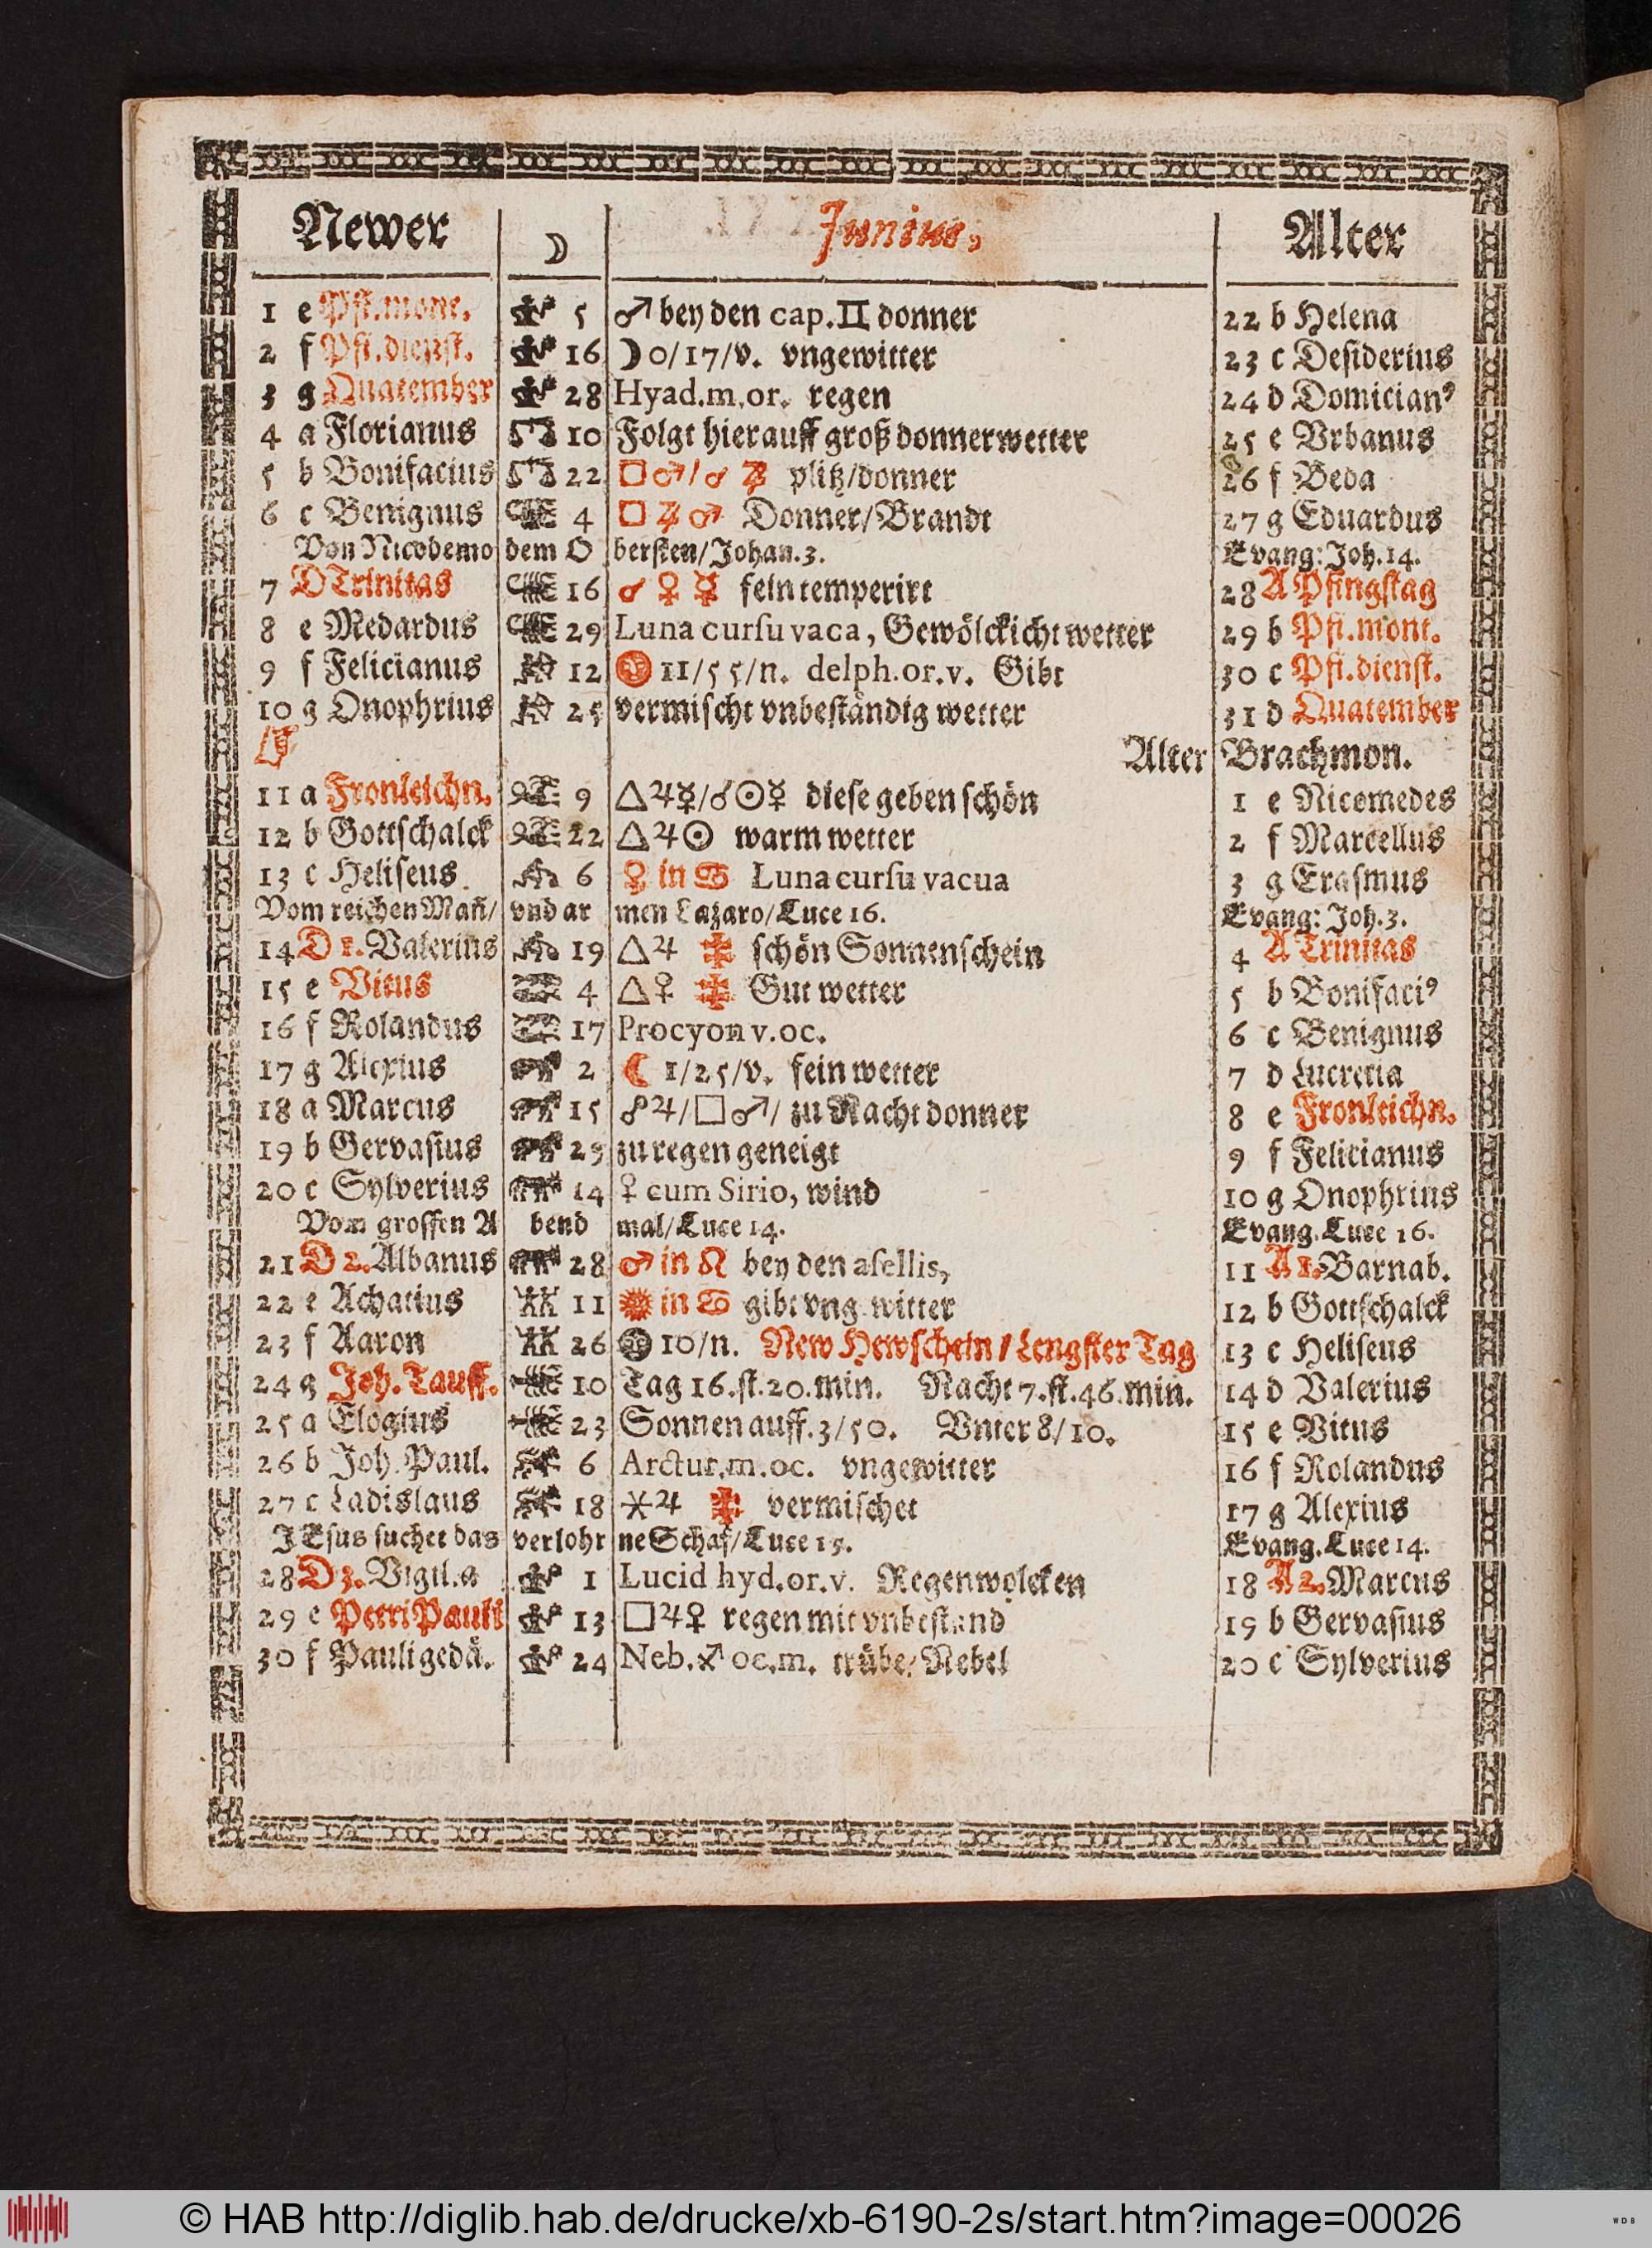 Newer ☽ Junius, Alter
1 e Pfi.mont. 5 ♂ bey den cap. ♊ donner 22 b Helena
2 f Pfi.dienst. 16 ☽ 0/17/v. vngewitter 23 c Desiderius
3 g Quatember 28 Hyad.m.or. regen 24 d Domicianꝰ
4 a Florianus 10 Folgt hierauff groß donnerwetter 25 e Vrbanus
5 b Bonifacius 22 □ ♂/☌ plitz/donner 26 f Beda
6 c Benignus 4 □ ♂ Donner/Brandt 27 g Eduardus
Von Nicodemo dem O bersten/Johan.3. Evang: Joh.14.
7 D Trinitas 16 ☌ ♀ ☿ fein temperirt 28 A Pfingstag
8 e Medardus 29 Luna cursu vaca, Gewölckicht wetter 29 b Pfi.mont.
9 f Felicianus 12 11/55/n. delph.or.v. Gibt 30 c Pfi.dienst.
10 g Onophrius 25 vermischt vnbeständig wetter 31 d Quatember
Alter Brachmon.
11 a Fronleichn. 9 △♃☿/☌☉☿ diese geben schön 1 e Nicomedes
12 b Gottschalck 22 △♃☉ warm wetter 2 f Marcellus
13 c Heliseus. 6 ♀ in ♋ Luna cursu vacua 3 g Erasmus
Vom reichen Mañ/ vnd ar men Lazaro/Luce 16. Evang: Joh.3.
14 D 1. Valerius 19 △♃ schön Sonnenschein 4 A Trinitas
15 e Vitus 4 △♀ Gut wetter 5 b Bonifaciꝰ
16 f Rolandus 17 Procyon v.oc. 6 c Benignus
17 g Alexius 2 ☾ 1/25/v. fein wetter 7 d Lucretia
18 a Marcus 15 ☍♃/□♂/ zu Nacht donner 8 e Fronleichn.
19 b Gervasius 29 zu regen geneigt 9 f Felicianus
20 c Sylverius 14 ♀ cum Sirio, wind 10 g Onophrius
Vom grossen A bend mal/Luce 14. Evang. Luce 16.
21 D 2. Albanus 28 ♂ in ♌ bey den asellis, 11 A 1. Barnab.
22 e Achatius 11 ☉ in ♋ gibt vng witter 12 b Gottschalck
23 f Aaron 26 10/n. New Hewschein / Lengster Tag 13 c Heliseus
24 g Joh. Tauff. 10 Tag 16.st.20.min. Nacht 7.st.46.min. 14 d Valerius
25 a Elogius 23 Sonnen auff.3/50. Vnter 8/10. 15 e Vitus
26 b Joh. Paul. 6 Arctur.m.oc. vngewitter 16 f Rolandus
27 c Ladislaus 18 ⚹♃ vermischet 17 g Alexius
JEsus suchet das verlohr ne Schaf/Luce 15. Evang. Luce 14.
28 D 3. Vigil.a 1 Lucid hyd.or.v. Regenwolcken 18 A 2. Marcus
29 e Petri Pauli 13 □♃♀ regen mit vnbestand 19 b Gervasius
30 f Pauli gedä. 24 Neb.♐ oc.m. trübe/Nebel 20 c Sylverius
© HAB http://diglib.hab.de/drucke/xb-6190-2s/start.htm?image=00026
WDB